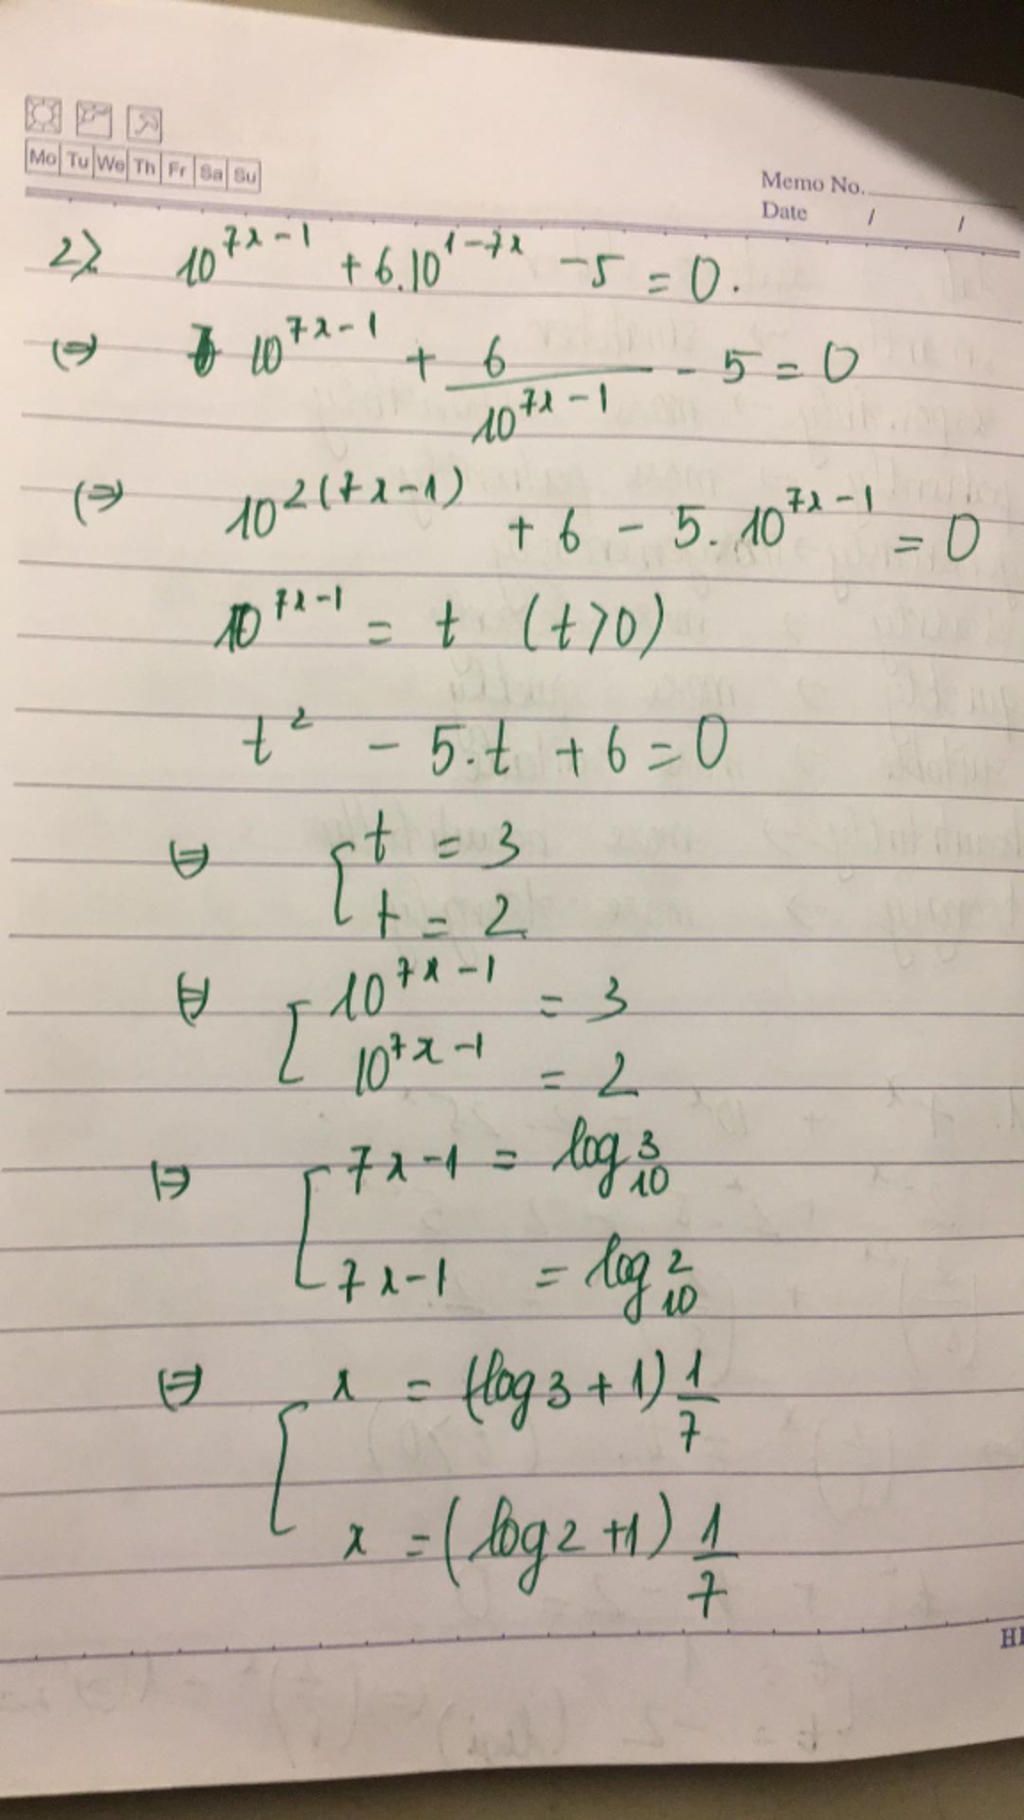 Mo Tu We Th Fr Sa Su
Memo No.
Date / /
2) 10^{7x-1} + 6.10^{1-7x} - 5 = 0.
(=) 10^{7x-1} + \frac{6}{10^{7x-1}} - 5 = 0
(=) 10^{2(7x-1)} + 6 - 5.10^{7x-1} = 0
10^{7x-1} = t (t>0)
t^2 - 5.t + 6 = 0
(=) [ t = 3
t = 2
(=) [ 10^{7x-1} = 3
10^{7x-1} = 2
(=) [ 7x-1 = log_{10}^{3}
7x-1 = log_{10}^{2}
(=) [ x = (log3+1) \frac{1}{7}
x = (log2+1) \frac{1}{7}